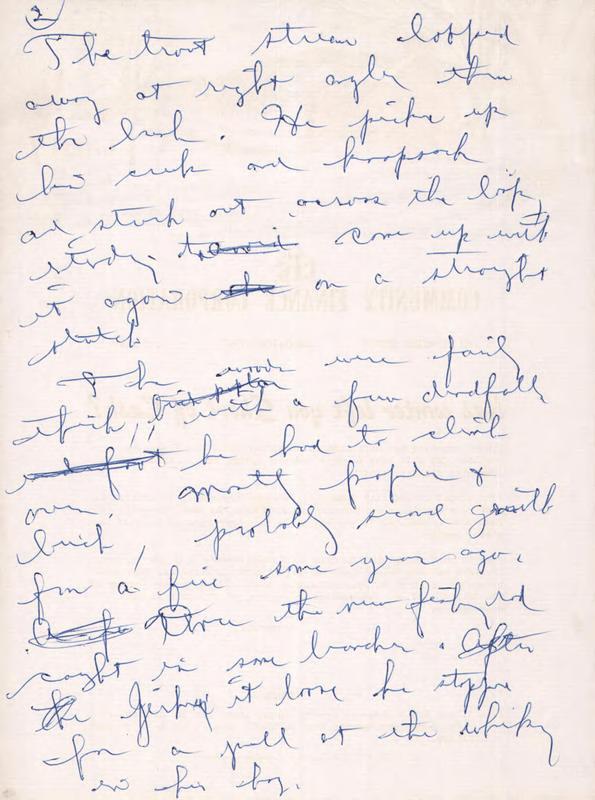 2
The trout stream lopped
away at right angles thru
the bush. He picks up
his creek and knapsack
and struck out across the loop,
study, to come up with
it again on a straight
stretch
The woods were fairly
thick, with a few deadfalls
he had to climb
over. Mostly poplar &
birch, probably second growth
from a fire some years ago.
Once the new fishing rod
caught in some branches. After
jerking it loose he stopped
for a pull at the whisky
in his bag.